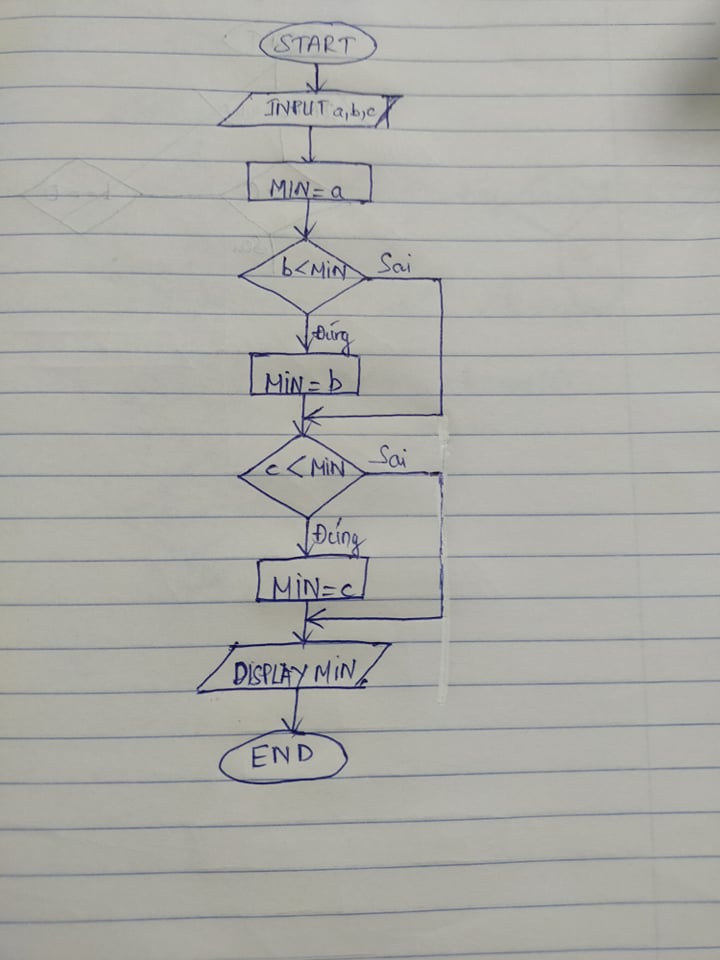 START
INPUT a,b,c
MIN = a
b < MIN
Sai
Đúng
MIN = b
c < MIN
Sai
Đúng
MIN = c
DISPLAY MIN
END